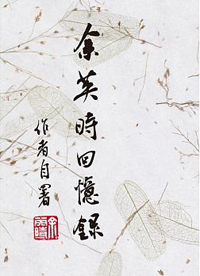 余英時回憶錄
作者自署